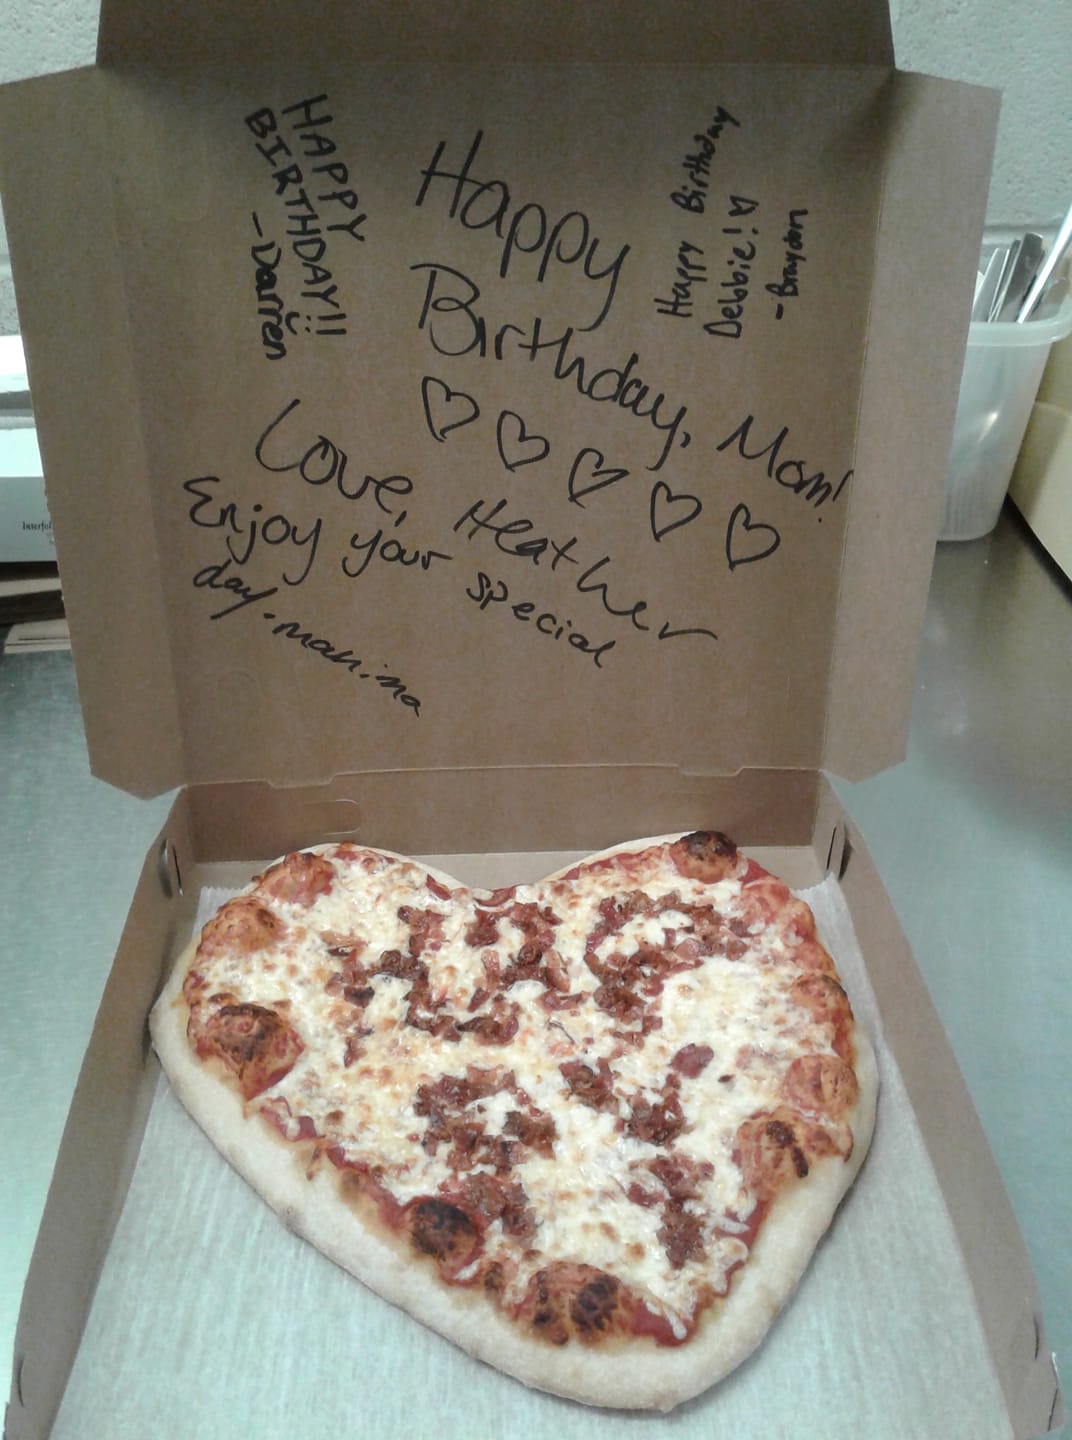 HAPPY
BIRTHDAY!!
-Darren
Happy
Birthday, Mom!
Happy Birthday
Debbie!
-Brayden
Love, Heather
Enjoy your special
day.